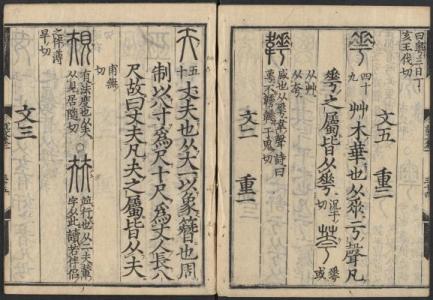 曰粵三日丁
亥王伐切
文五 重二
𠌶 四十九 艸木華也从𠂹亏聲凡
𠌶之屬皆从𠌶 況于切 荂 𠌶或
从艸
从夸
韡 盛也从𠌶韋聲詩曰
萼不韡韡 于鬼切
文二 重一
夫 五十 丈夫也从大一以象簪也周
制以八寸爲尺十尺爲丈人長八
尺故曰丈夫凡夫之屬皆从夫
甫無切
規 有法度也从夫
从見居隨切 㚘 並行也从二夫輦
字从此讀若伴侶
之伴薄
旱切
文三